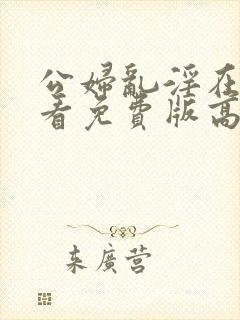 公婦亂淫在
看免費版高
来廣营